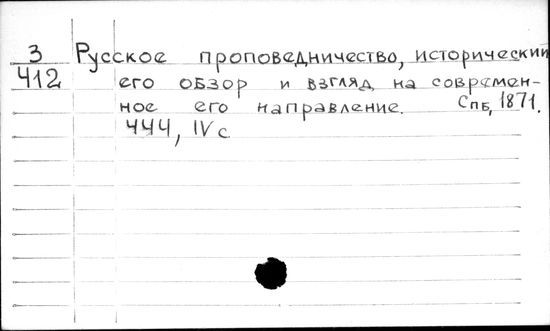 3
412
Русское проповедничество, исторический
его обзор и взгляд на современ-
ное его направление. Спб, 1871.
444, IV с